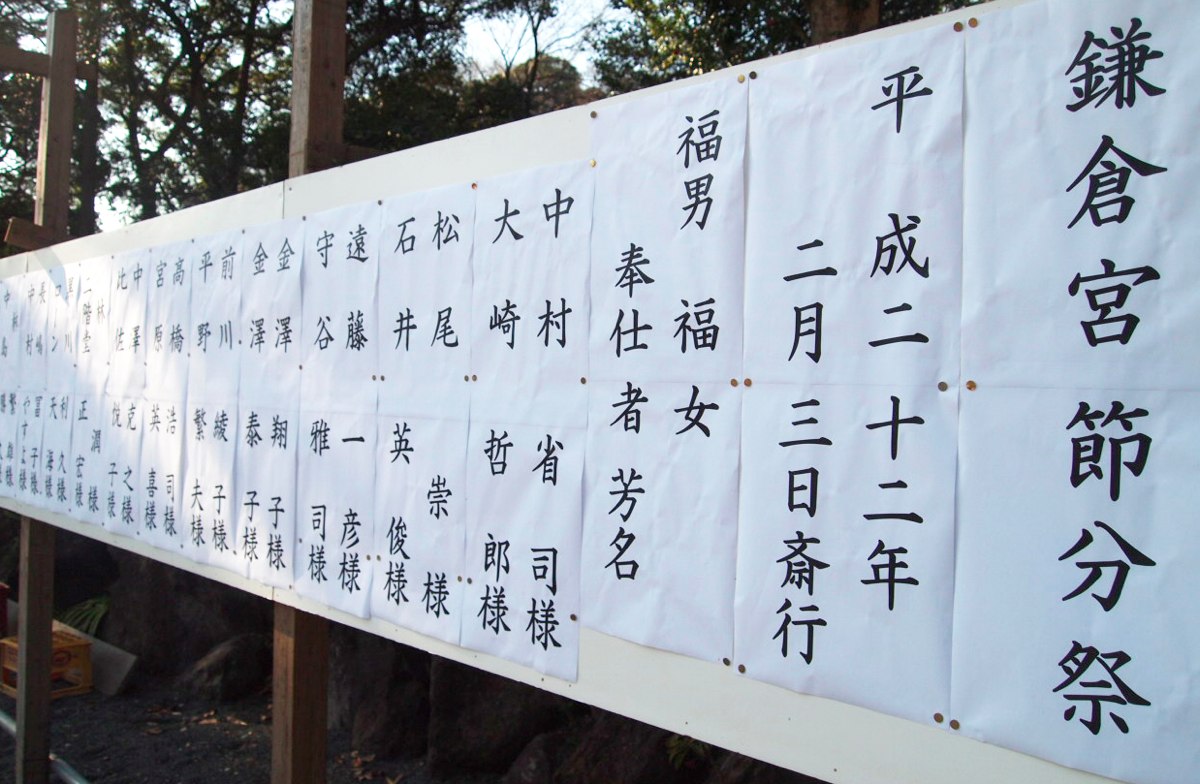 鎌倉宮節分祭
平成二十二年
二月三日斎行
福男福女
奉仕者芳名
中村省司様
大崎哲郎様
松尾崇様
石井英俊様
遠藤一彦様
守谷雅司様
金澤翔子様
金澤泰子様
前川綾子様
平野繁夫様
高橋浩司様
宮原英喜様
中澤克之様
比佐悦子様
林潤様
二階堂正宏様